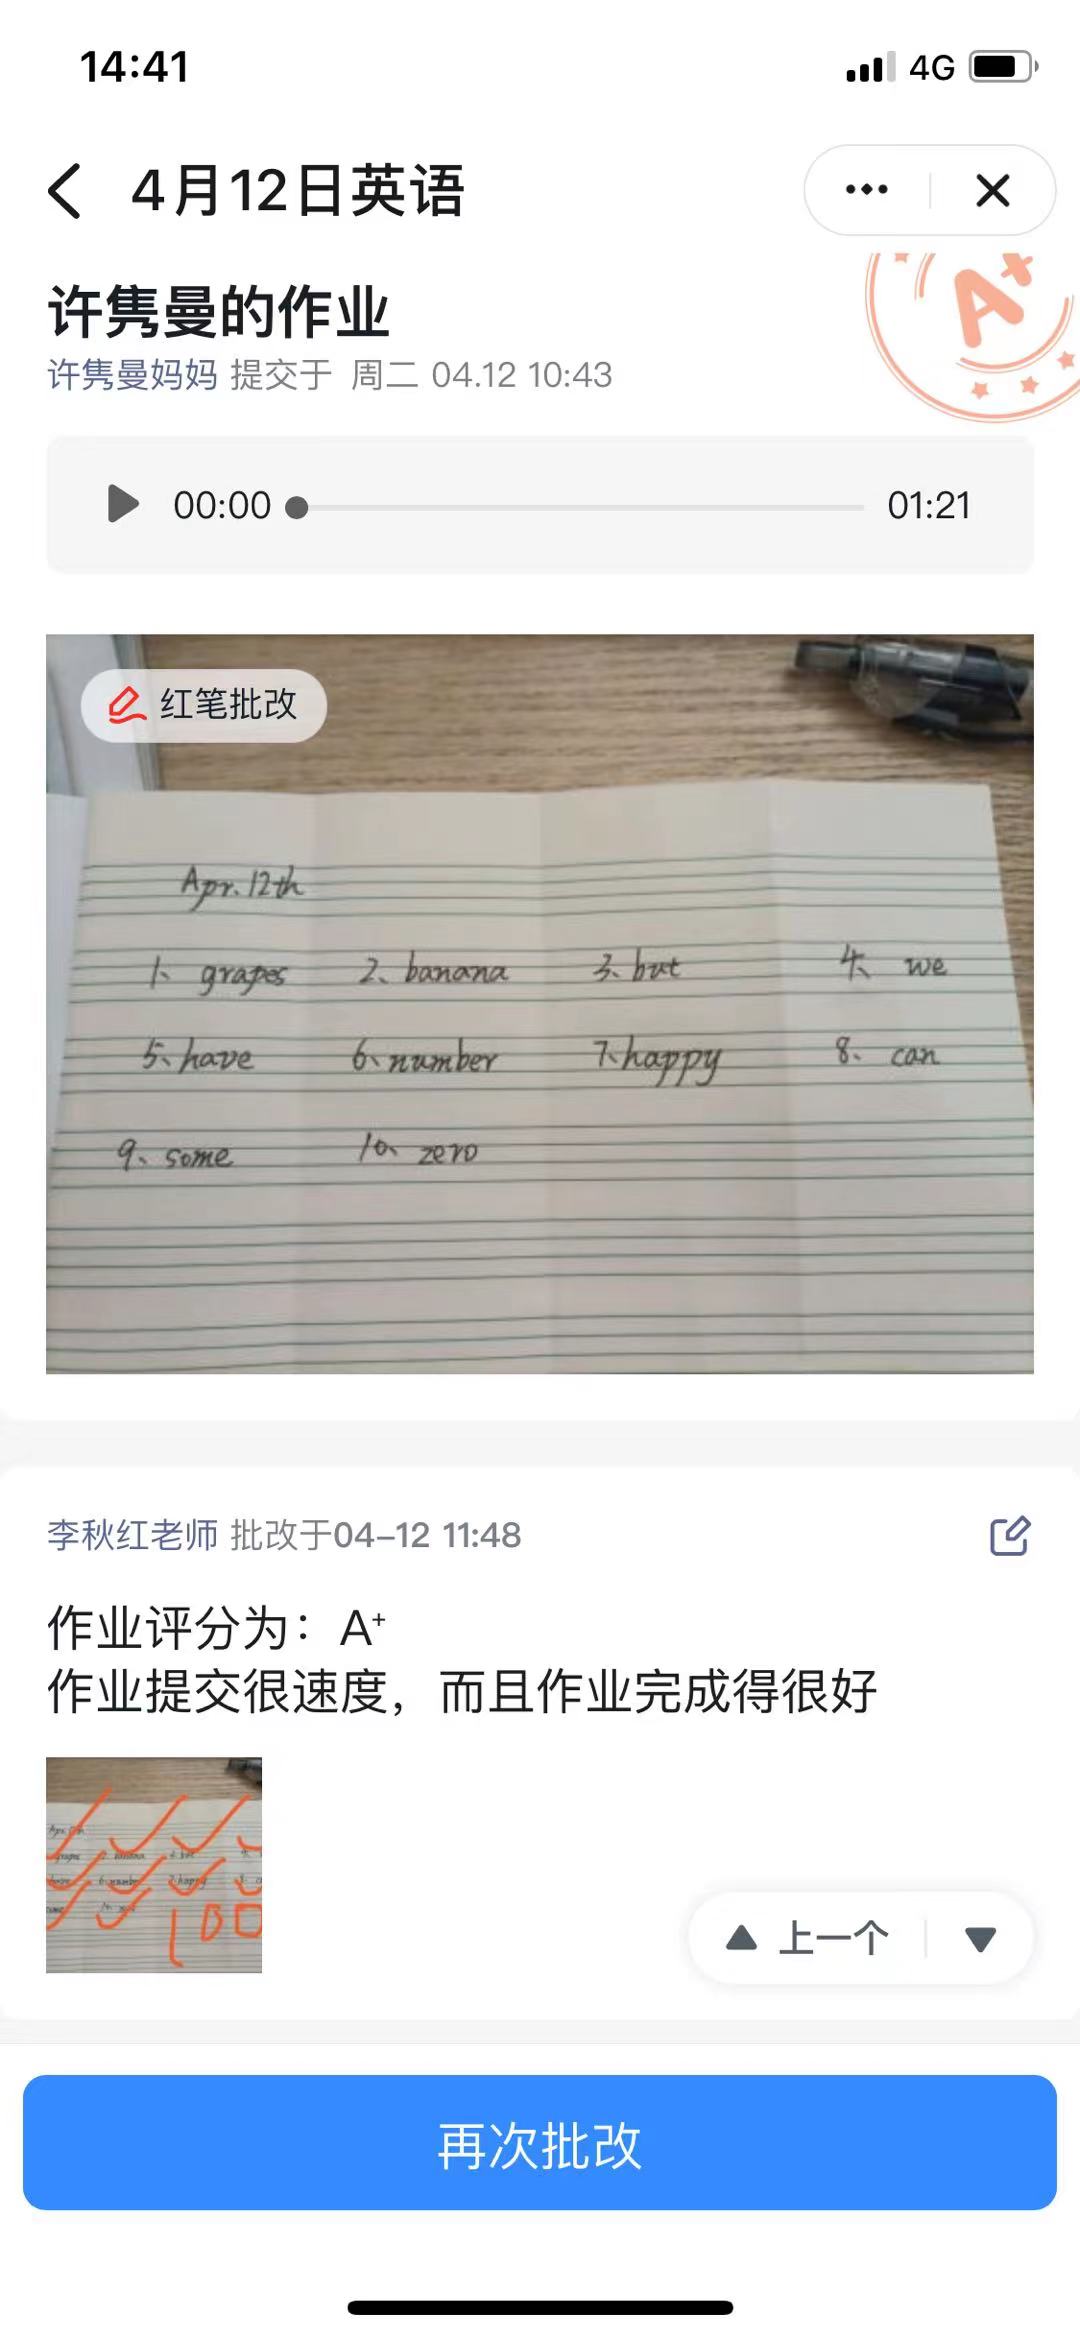 14:41
4G
4月12日英语
A+
许隽曼的作业
许隽曼妈妈 提交于 周二 04.12 10:43
00:00 01:21
红笔批改
Apr. 12th
1、grapes 2、banana 3、but 4、we
5、have 6、number 7、happy 8、can
9、some 10、zero
李秋红老师 批改于04-12 11:48
作业评分为：A+
作业提交很速度，而且作业完成得很好
100
上一个
再次批改